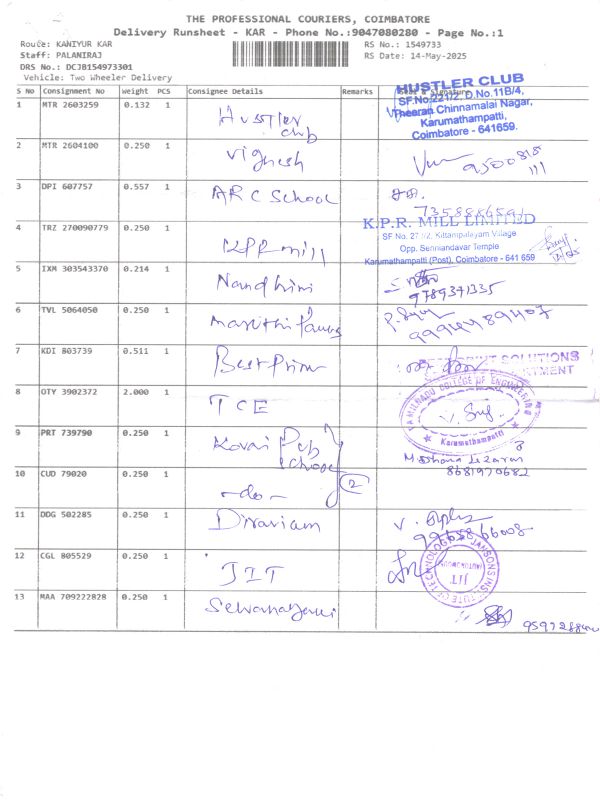 THE PROFESSIONAL COURIERS, COIMBATORE
Delivery Runsheet - KAR - Phone No.:9047080280 - Page No.:1
Route: KANIYUR KAR
RS No.: 1549733
Staff: PALANIRAJ
RS Date: 14-May-2025
DRS No.: DCJB154973301
Vehicle: Two Wheeler Delivery
S No Consignment No Weight PCS Consignee Details Remarks
HUSTLER CLUB
SF.No.221/2, D.No.11B/4,
Theeran Chinnamalai Nagar,
Karumathampatti,
Coimbatore - 641659.
1 MTR 2603259 0.132 1 Hustler club
2 MTR 2604100 0.250 1 Vighesh
3 DPI 607757 0.557 1 ARC School
K.P.R. MILL LIMITED
SF No. 27 /2, Kittampalayam Village
Opp. Senniandavar Temple
Karumathampatti (Post), Coimbatore - 641 659
4 TRZ 270090779 0.250 1 KPR mill
5 IXM 303543370 0.214 1 Nandhini
9789371335
6 TVL 5064050 0.250 1
7 KDI 803739 0.511 1 Best Prim
SOLUTIONS
8 OTY 3902372 2.000 1 TCE
TAMILNADU COLLEGE OF ENGINEERING
Karumathampatti
9 PRT 739790 0.250 1 Kovai Pub School
8681970682
10 CUD 79020 0.250 1 -do- 2
11 DDG 502285 0.250 1 Draviam
12 CGL 805529 0.250 1 JIT
JANSONS INSTITUTE OF TECHNOLOGY
JIT
13 MAA 709222828 0.250 1